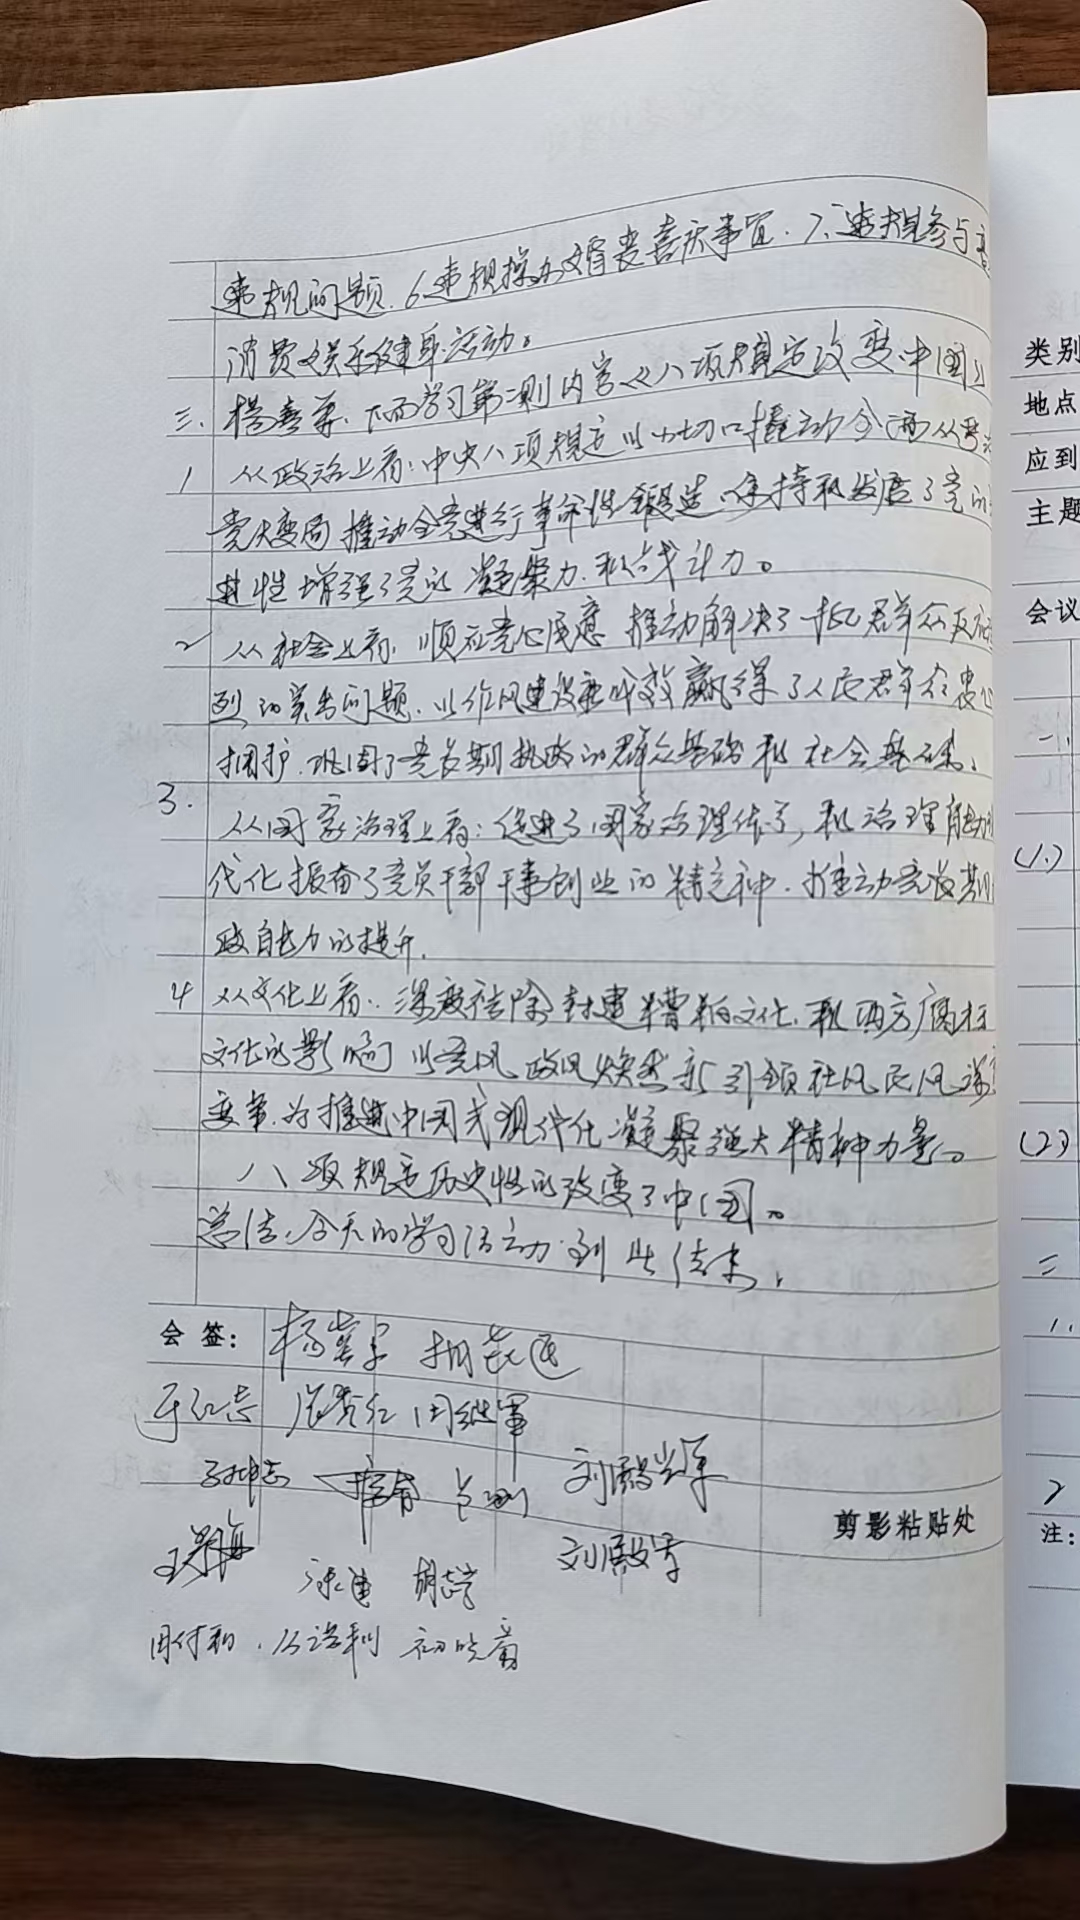 违规问题.6.违规操办婚丧喜庆事宜.7.违规参与高
消费娱乐健身活动。
三. 杨崇军.下面学习第二则内容《八项规定改变中国》
1 从政治上看:中央八项规定以小切口撬动全面从严治
党大变局 推动全党进行革命性锻造.保持和发展了党的
进性增强了党的凝聚力.和战斗力。
2 从社会上看.顺应党心民意 推动解决了一批群众反应
烈的突出问题.以作风建设新成效赢得了人民群众衷心
拥护.巩固了党长期执政的群众基础和社会基础.
3. 从国家治理上看:促进了国家治理体系,和治理能力
代化振奋了党员干部干事创业的精之神.推动党长期
政能力的提升.
4 从文化上看:深度祛除封建糟粕文化.和西方腐朽
文化的影响 以党风政风焕然新引领社风民风深
变革.为推进中国式现代化凝聚强大精神力量。
八项规定历史性的改变了中国。
总结:今天的学习活动到此结束.
会 签: 杨崇军
于红志 周继军
刘殿军
胡志学
剪影粘贴处
类别
地点
应到
主题
会议
一.
(1.)
(2)
三
1.
2
注: